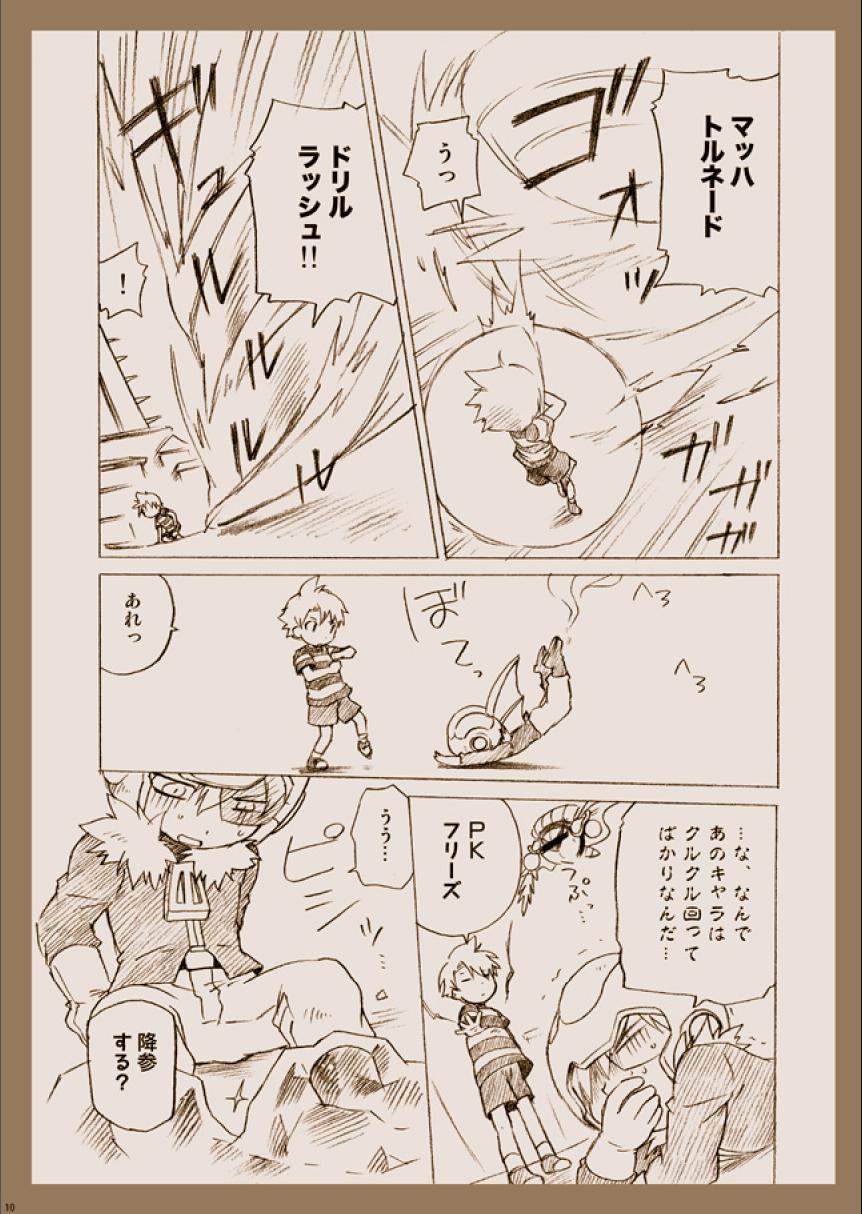 マッハ
トルネード
ゴォッ
うっ
ガッ
ガッ
ガッ
ドリル
ラッシュ!!
ギュルルルル
!
へろ
へろ
ぼてっ
あれっ
…な、なんで
あのキャラは
クルクル回って
ばかりなんだ…
うぷっ…
PK
フリーズ
うう…
ピシッ
降参
する?
10